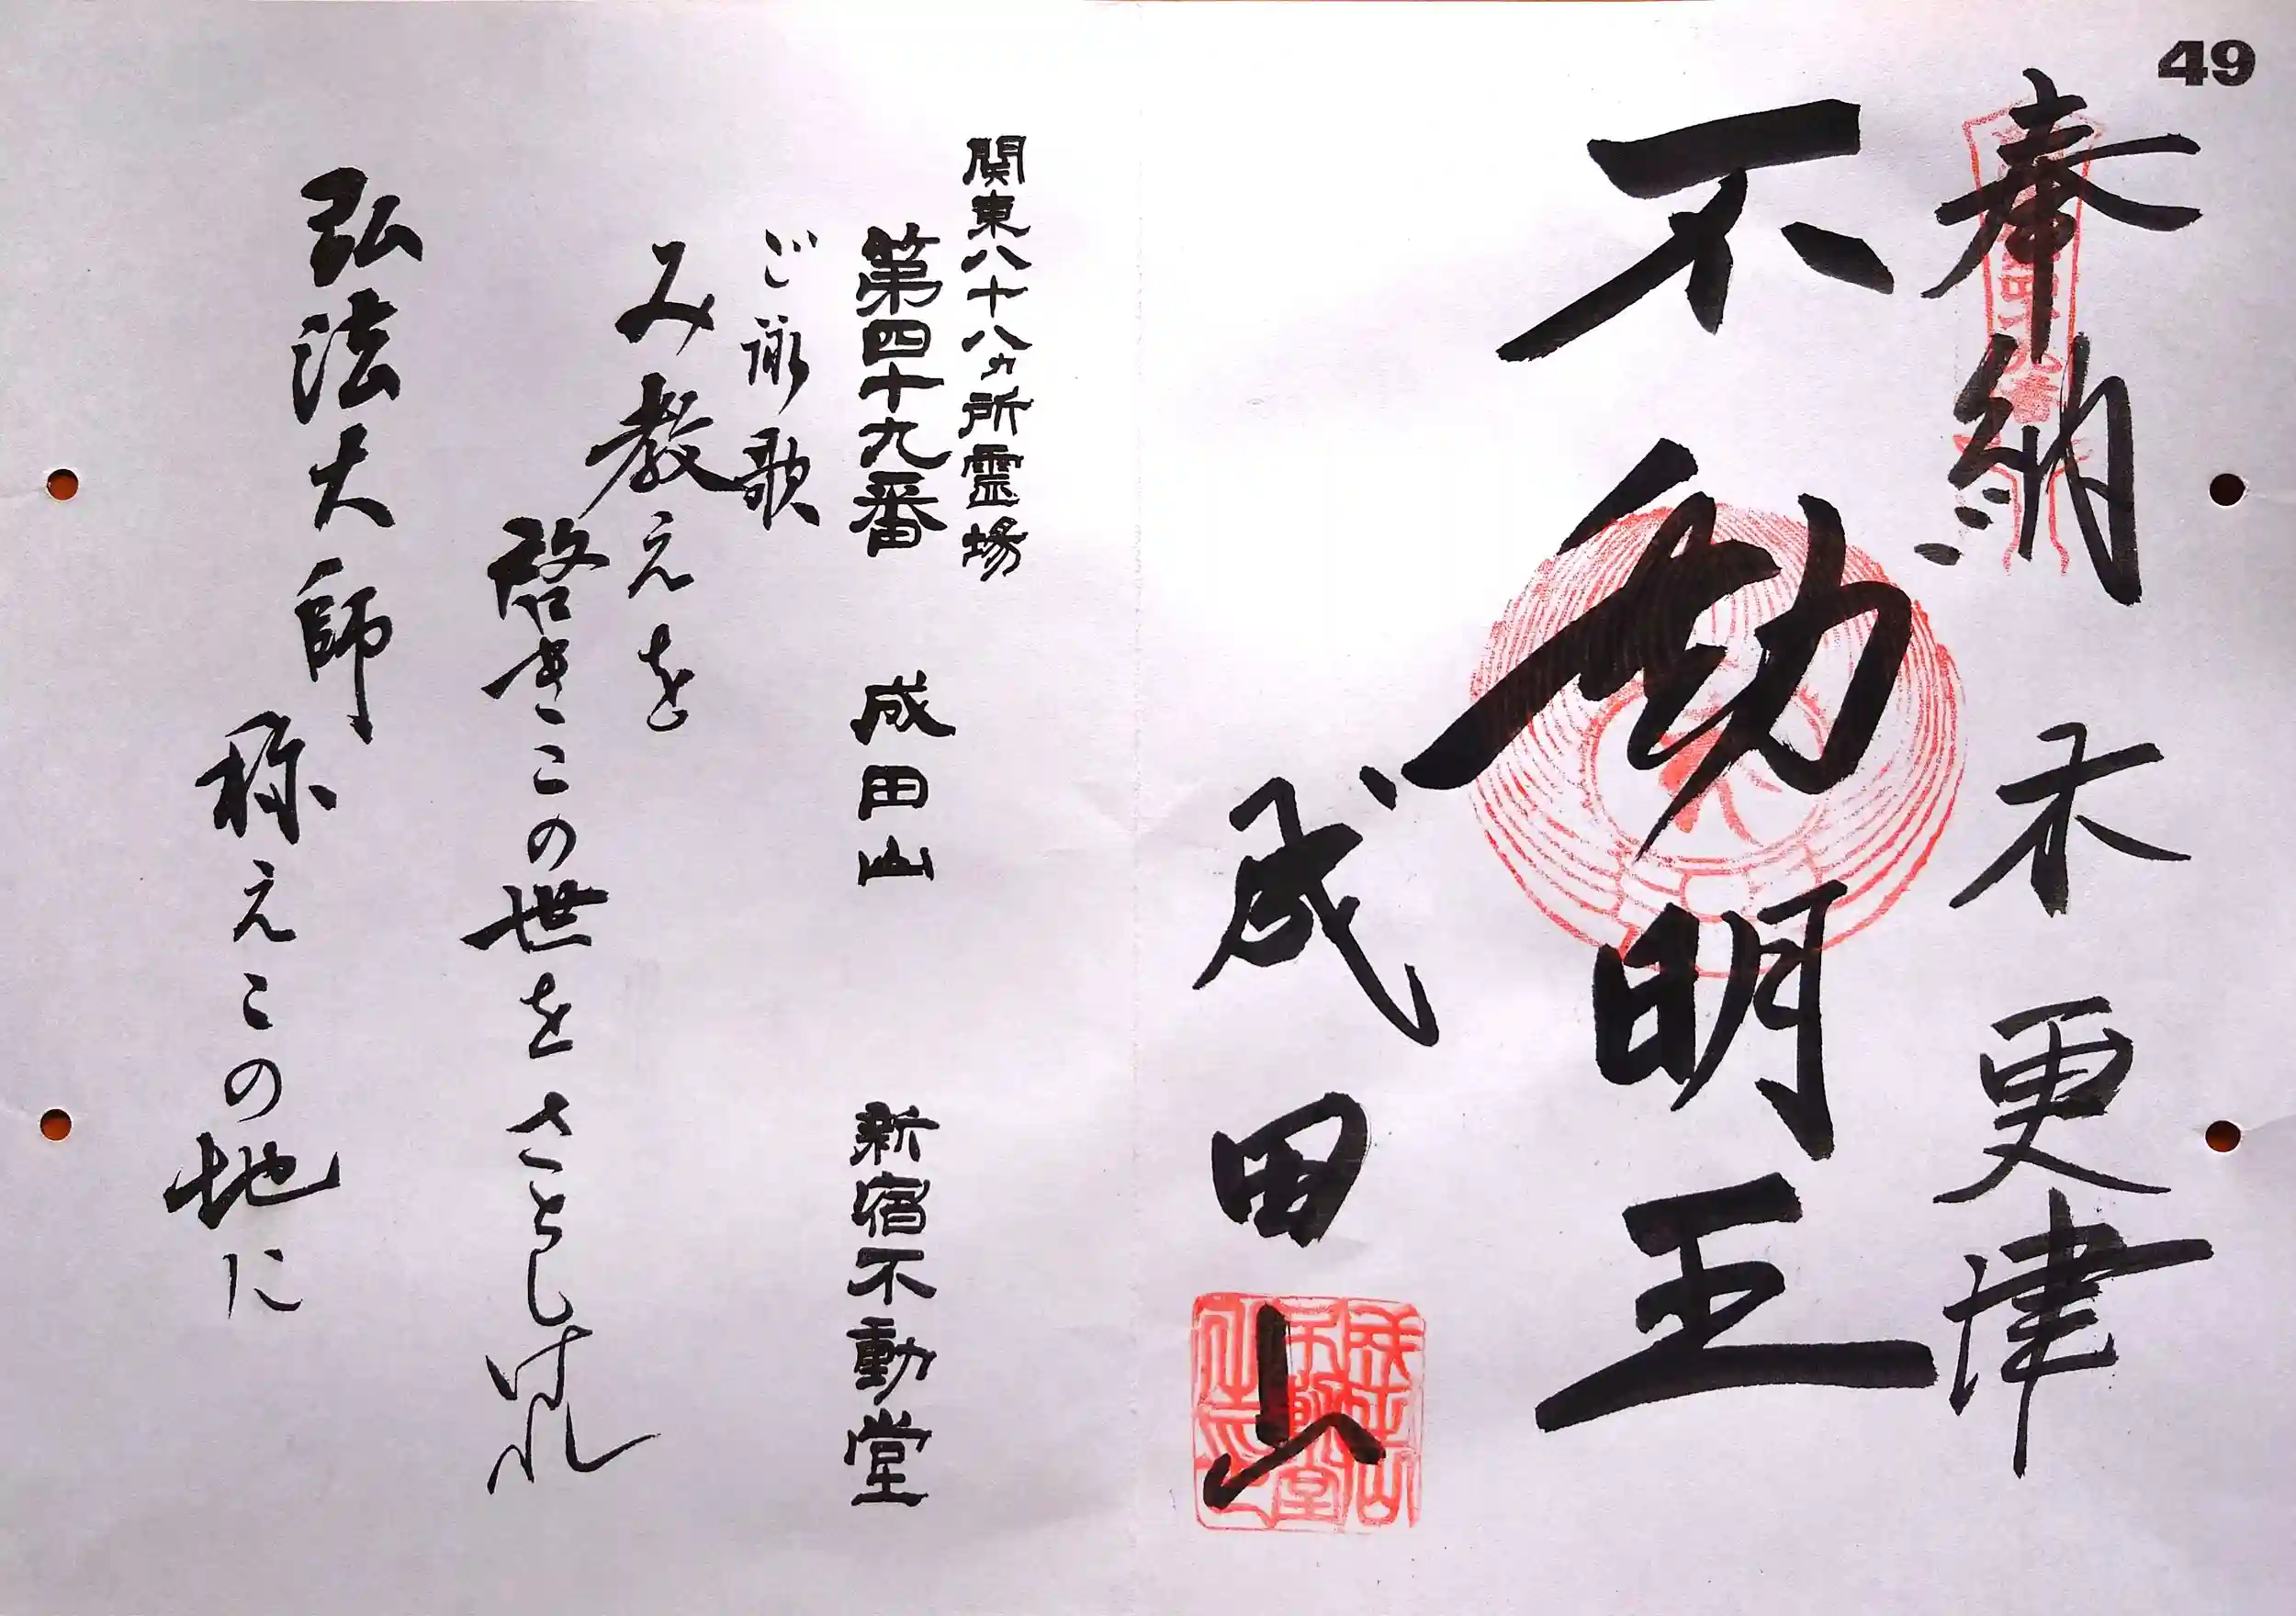 49
奉納 木更津
不動明王
成田山
関東八十八ヵ所霊場
第四十九番 成田山 新宿不動堂
ご詠歌
み教えを
啓きこの世をさとしけれ
弘法大師
称えこの地に